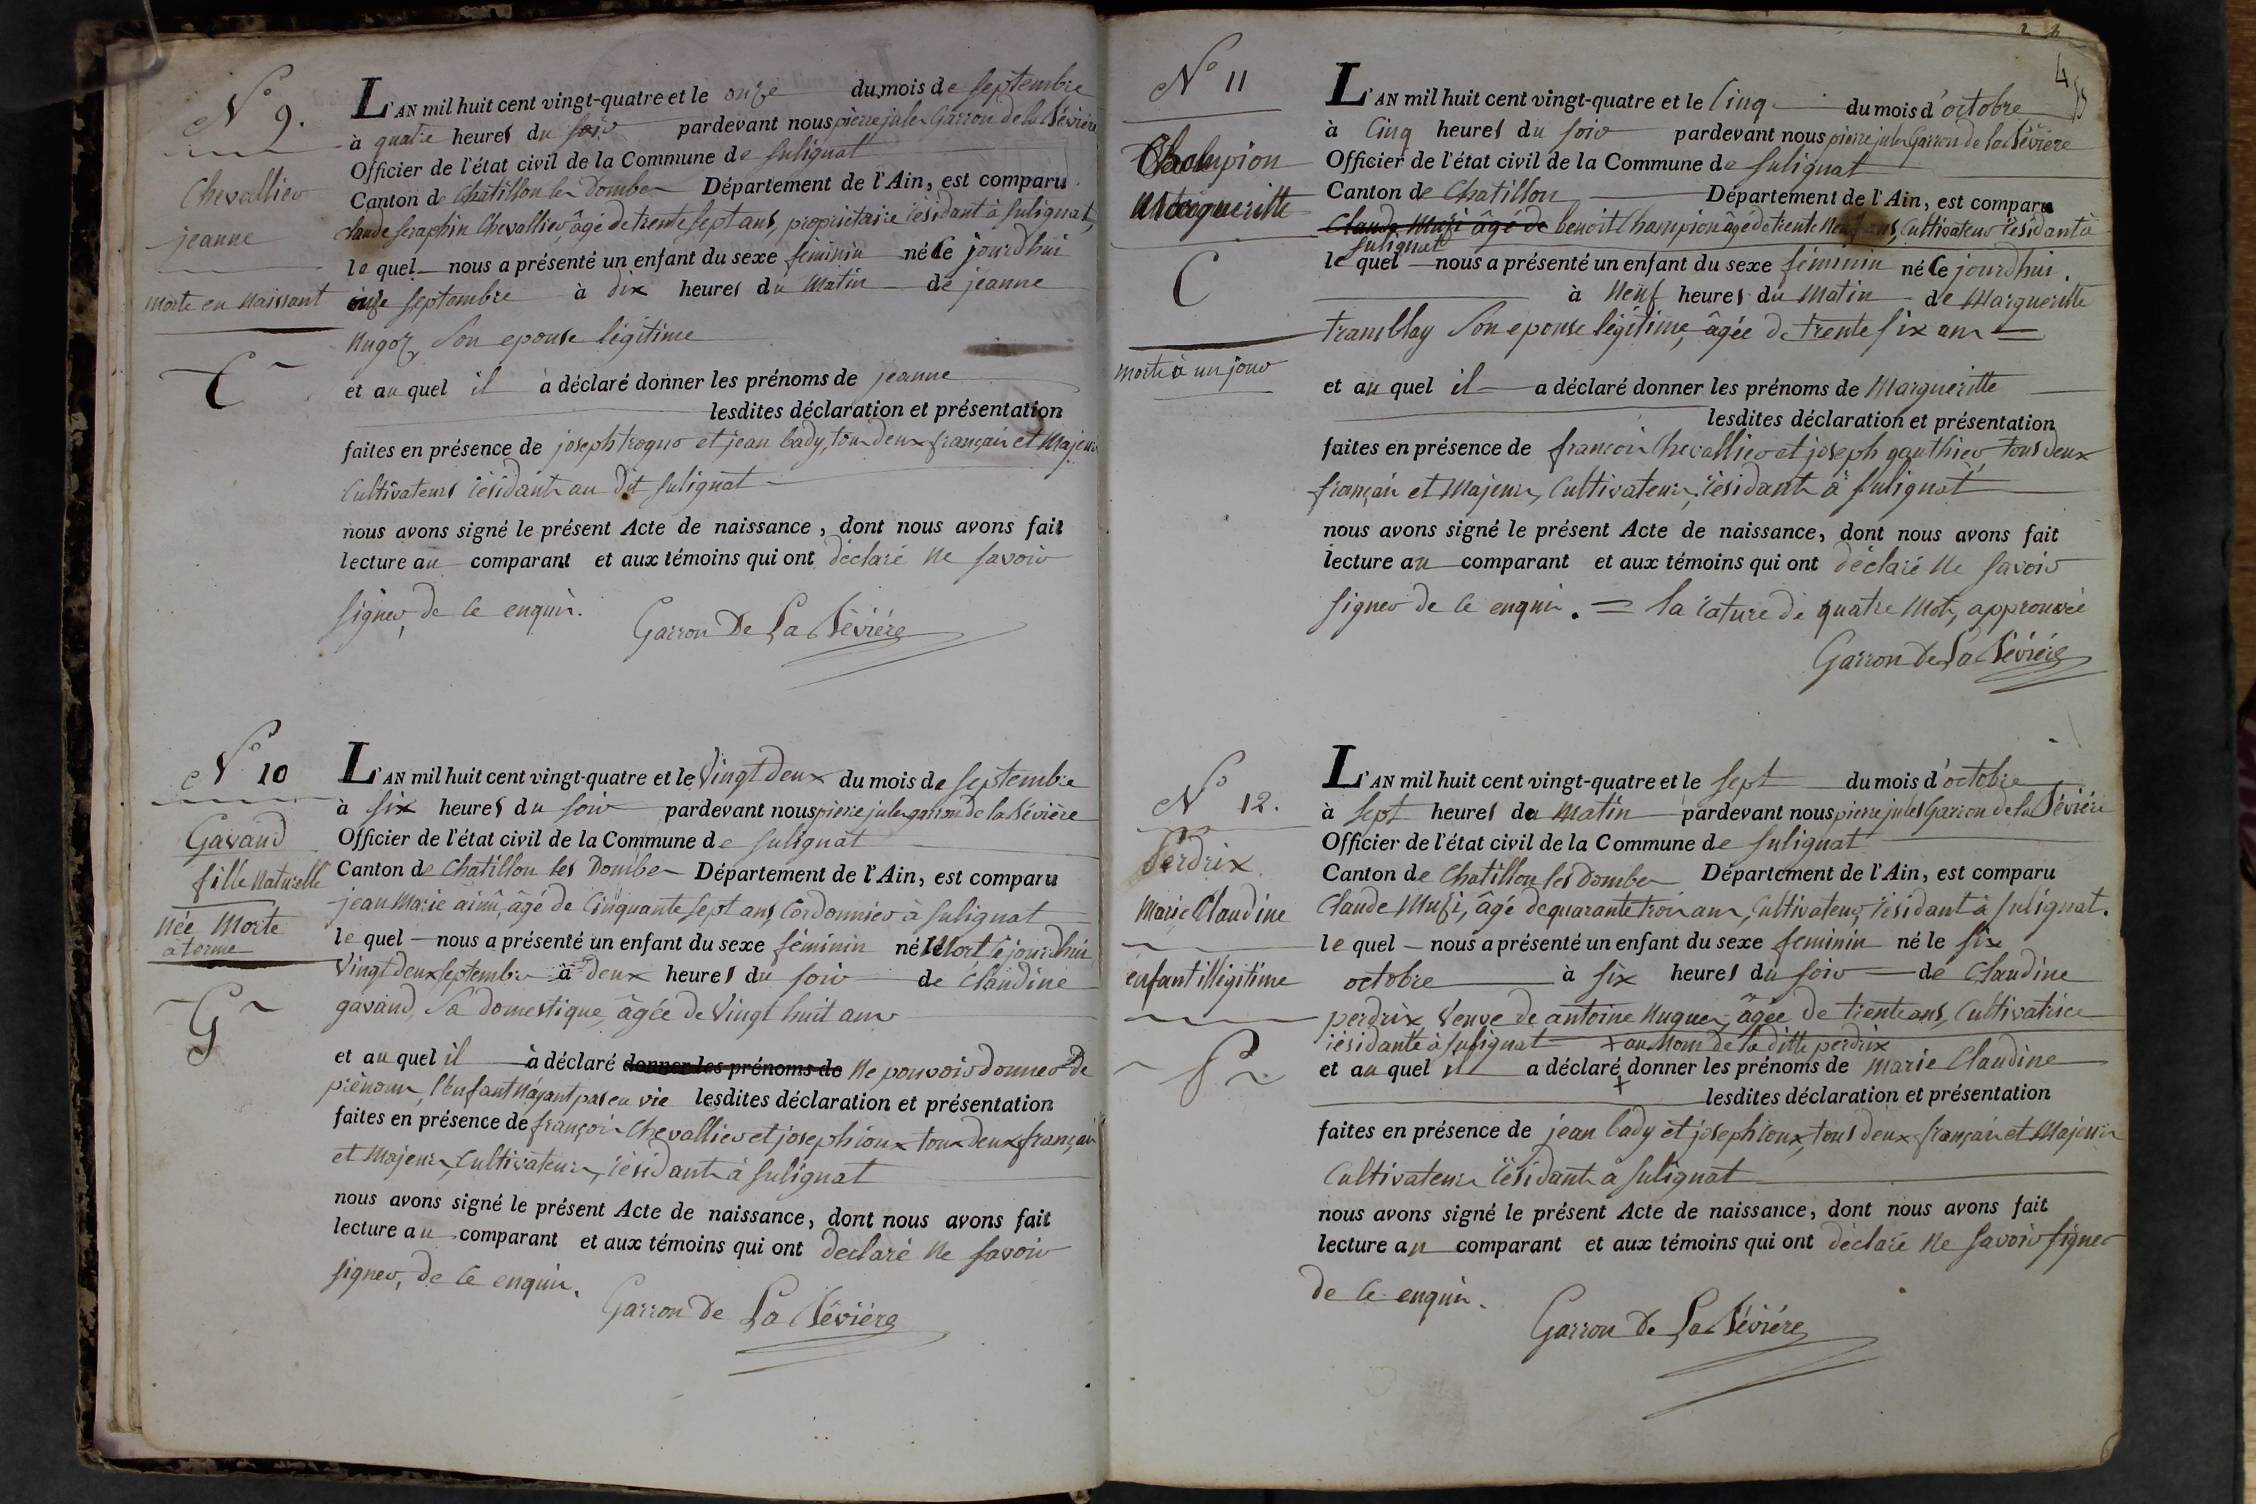 N° 9.
Chevallier
jeanne
morte en naissant
C
L'AN mil huit cent vingt-quatre et le onze du mois de septembre
à quatre heures du soir pardevant nous pierre jules Garron de la Sévière
Officier de l'état civil de la Commune de sulignat
Canton de Chatillon les Dombes Département de l'Ain, est comparu
Claude séraphin Chevallier, âgé de trente sept ans, propriétaire résidant à sulignat,
le quel nous a présenté un enfant du sexe féminin né Ce jourd'hui
onze septembre à dix heures du matin de jeanne
son epouse légitime
et au quel il à déclaré donner les prénoms de jeanne
lesdites déclaration et présentation
faites en présence de joseph et jean bady, tous deux français et Majeurs
Cultivateurs résidants au dit sulignat
nous avons signé le présent Acte de naissance, dont nous avons fait
lecture au comparant et aux témoins qui ont déclaré ne savoir
signer, de ce enquis.
Garron De La Sévière
N° 10
Gavand
fille naturelle
née morte
à terme
G
L'AN mil huit cent vingt-quatre et le vingt deux du mois de septembre
à six heures du soir pardevant nous pierre jules garron de la Sévière
Officier de l'état civil de la Commune de sulignat
Canton de Chatillon les Dombes Département de l'Ain, est comparu
jean Marie âgé de Cinquante sept ans, Cordonnier à sulignat
le quel nous a présenté un enfant du sexe féminin né Mort Ce jourd'hui
vingt deux septembre à deux heures du soir de Claudine
gavand, sa domestique, âgée de vingt huit ans
et au quel il à déclaré donner les prénoms de ne pouvoir donner de
prénoms, l'enfant n'ayant pas eu vie lesdites déclaration et présentation
faites en présence de françois Chevallier et joseph tous deux français
et Majeurs, Cultivateurs, résidants à sulignat
nous avons signé le présent Acte de naissance, dont nous avons fait
lecture au comparant et aux témoins qui ont déclaré ne savoir
signer, de ce enquis.
Garron De La Sévière
N° 11
Champion
Margueritte
C
morte à un jour
L'AN mil huit cent vingt-quatre et le Cinq du mois d'octobre
à Cinq heures du soir pardevant nous pierre jules Garron de la Sévière
Officier de l'état civil de la Commune de sulignat
Canton de Chatillon Département de l'Ain, est comparu
Claude âgé de benoit Champion âgé de trente neuf ans, Cultivateur résidant à
sulignat
le quel nous a présenté un enfant du sexe féminin né Ce jourd'hui.
à neuf heures du matin de Margueritte
tramblay son epouse légitime, âgée de trente six ans
et au quel il a déclaré donner les prénoms de Margueritte
lesdites déclaration et présentation
faites en présence de françois Chevallier et joseph gauthier, tous deux
français et Majeurs, Cultivateurs, résidants à sulignat
nous avons signé le présent Acte de naissance, dont nous avons fait
lecture au comparant et aux témoins qui ont déclaré ne savoir
signer de ce enquis. = la rature de quatre mots, approuvée
Garron De La Sévière
N° 12.
Perdrix
Marie Claudine
enfant illégitime
P
L'AN mil huit cent vingt-quatre et le sept du mois d'octobre
à sept heures du matin pardevant nous pierre jules Garron de la Sévière
Officier de l'état civil de la Commune de sulignat
Canton de Chatillon les Dombes Département de l'Ain, est comparu
Claude âgé de quarante trois ans, Cultivateur, résidant à sulignat.
le quel nous a présenté un enfant du sexe feminin né le six
octobre à six heures du soir de Claudine
perdrix veuve de antoine âgée de trente ans, Cultivatrice
résidante à sulignat + au nom de la ditte perdrix
et au quel il a déclaré + donner les prénoms de marie Claudine
lesdites déclaration et présentation
faites en présence de jean bady et joseph tous deux français et Majeurs
Cultivateurs résidants à sulignat
nous avons signé le présent Acte de naissance, dont nous avons fait
lecture au comparant et aux témoins qui ont déclaré ne savoir signer
de ce enquis.
Garron De La Sévière